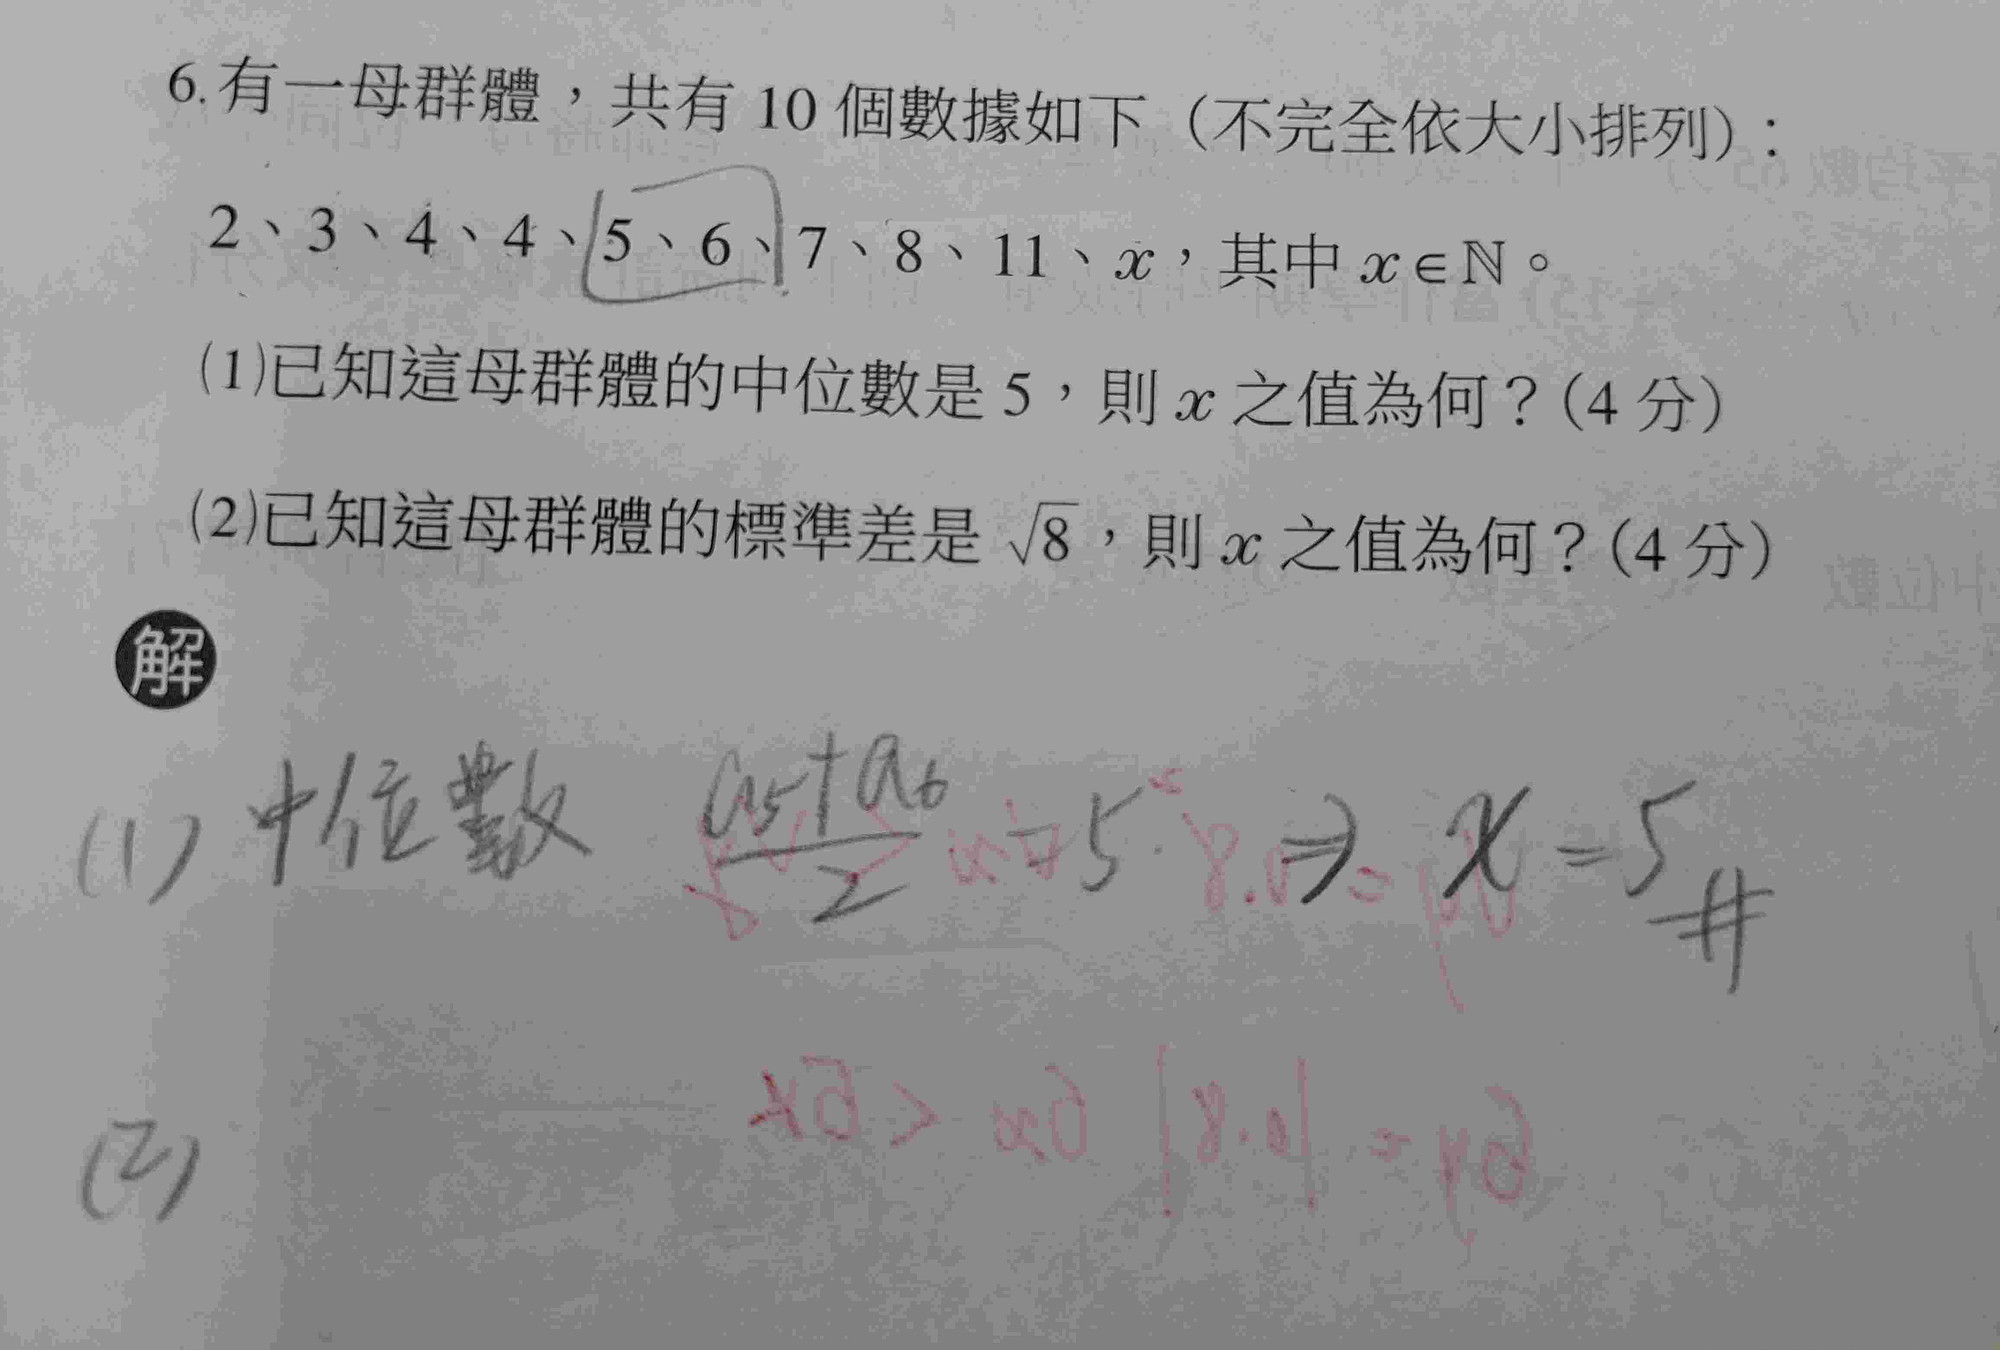 6.有一母群體，共有 10 個數據如下（不完全依大小排列）：
2、3、4、4、5、6、7、8、11、x，其中 x∈ℕ。
(1)已知這母群體的中位數是 5，則 x 之值為何？（4 分）
(2)已知這母群體的標準差是 √8，則 x 之值為何？（4 分）
解
(1) 中位數 (a5+a6)/2 = 5 ⇒ x = 5 #
(2)